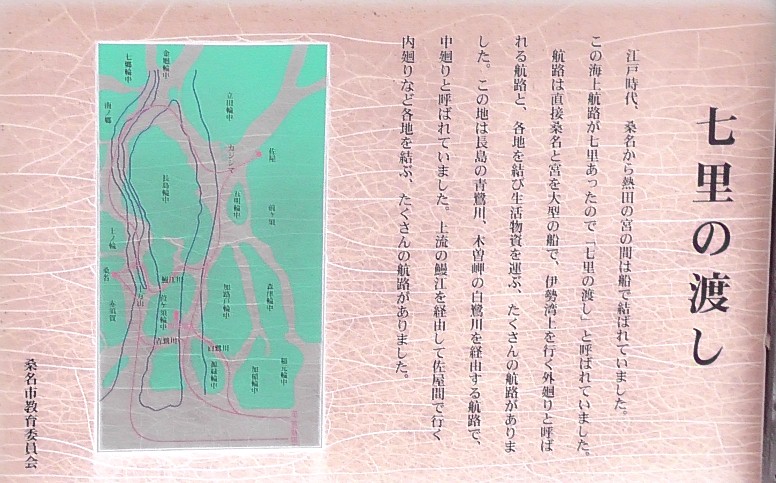 七里の渡し
江戸時代、桑名から熱田の宮の間は船で結ばれていました。
この海上航路が七里あったので「七里の渡し」と呼ばれていました。
航路は直接桑名と宮を大型の船で、伊勢湾上を行く外廻りと呼ば
れる航路と、各地を結び生活物資を運ぶ、たくさんの航路がありま
した。この地は長島の青鷺川、木曽岬の白鷺川を経由する航路で、
中廻りと呼ばれていました。上流の鰻江を経由して佐屋間で行く
内廻りなど各地を結ぶ、たくさんの航路がありました。
桑名市教育委員会
金廻輪中
七郷輪中
立田輪中
佐屋
長島輪中
五明輪中
前ヶ須
上ノ輪
桑名
赤須賀
鰻江川
加路戸輪中
森津輪中
青鷺川
白鷺川
源緑輪中
加稲輪中
稲元輪中